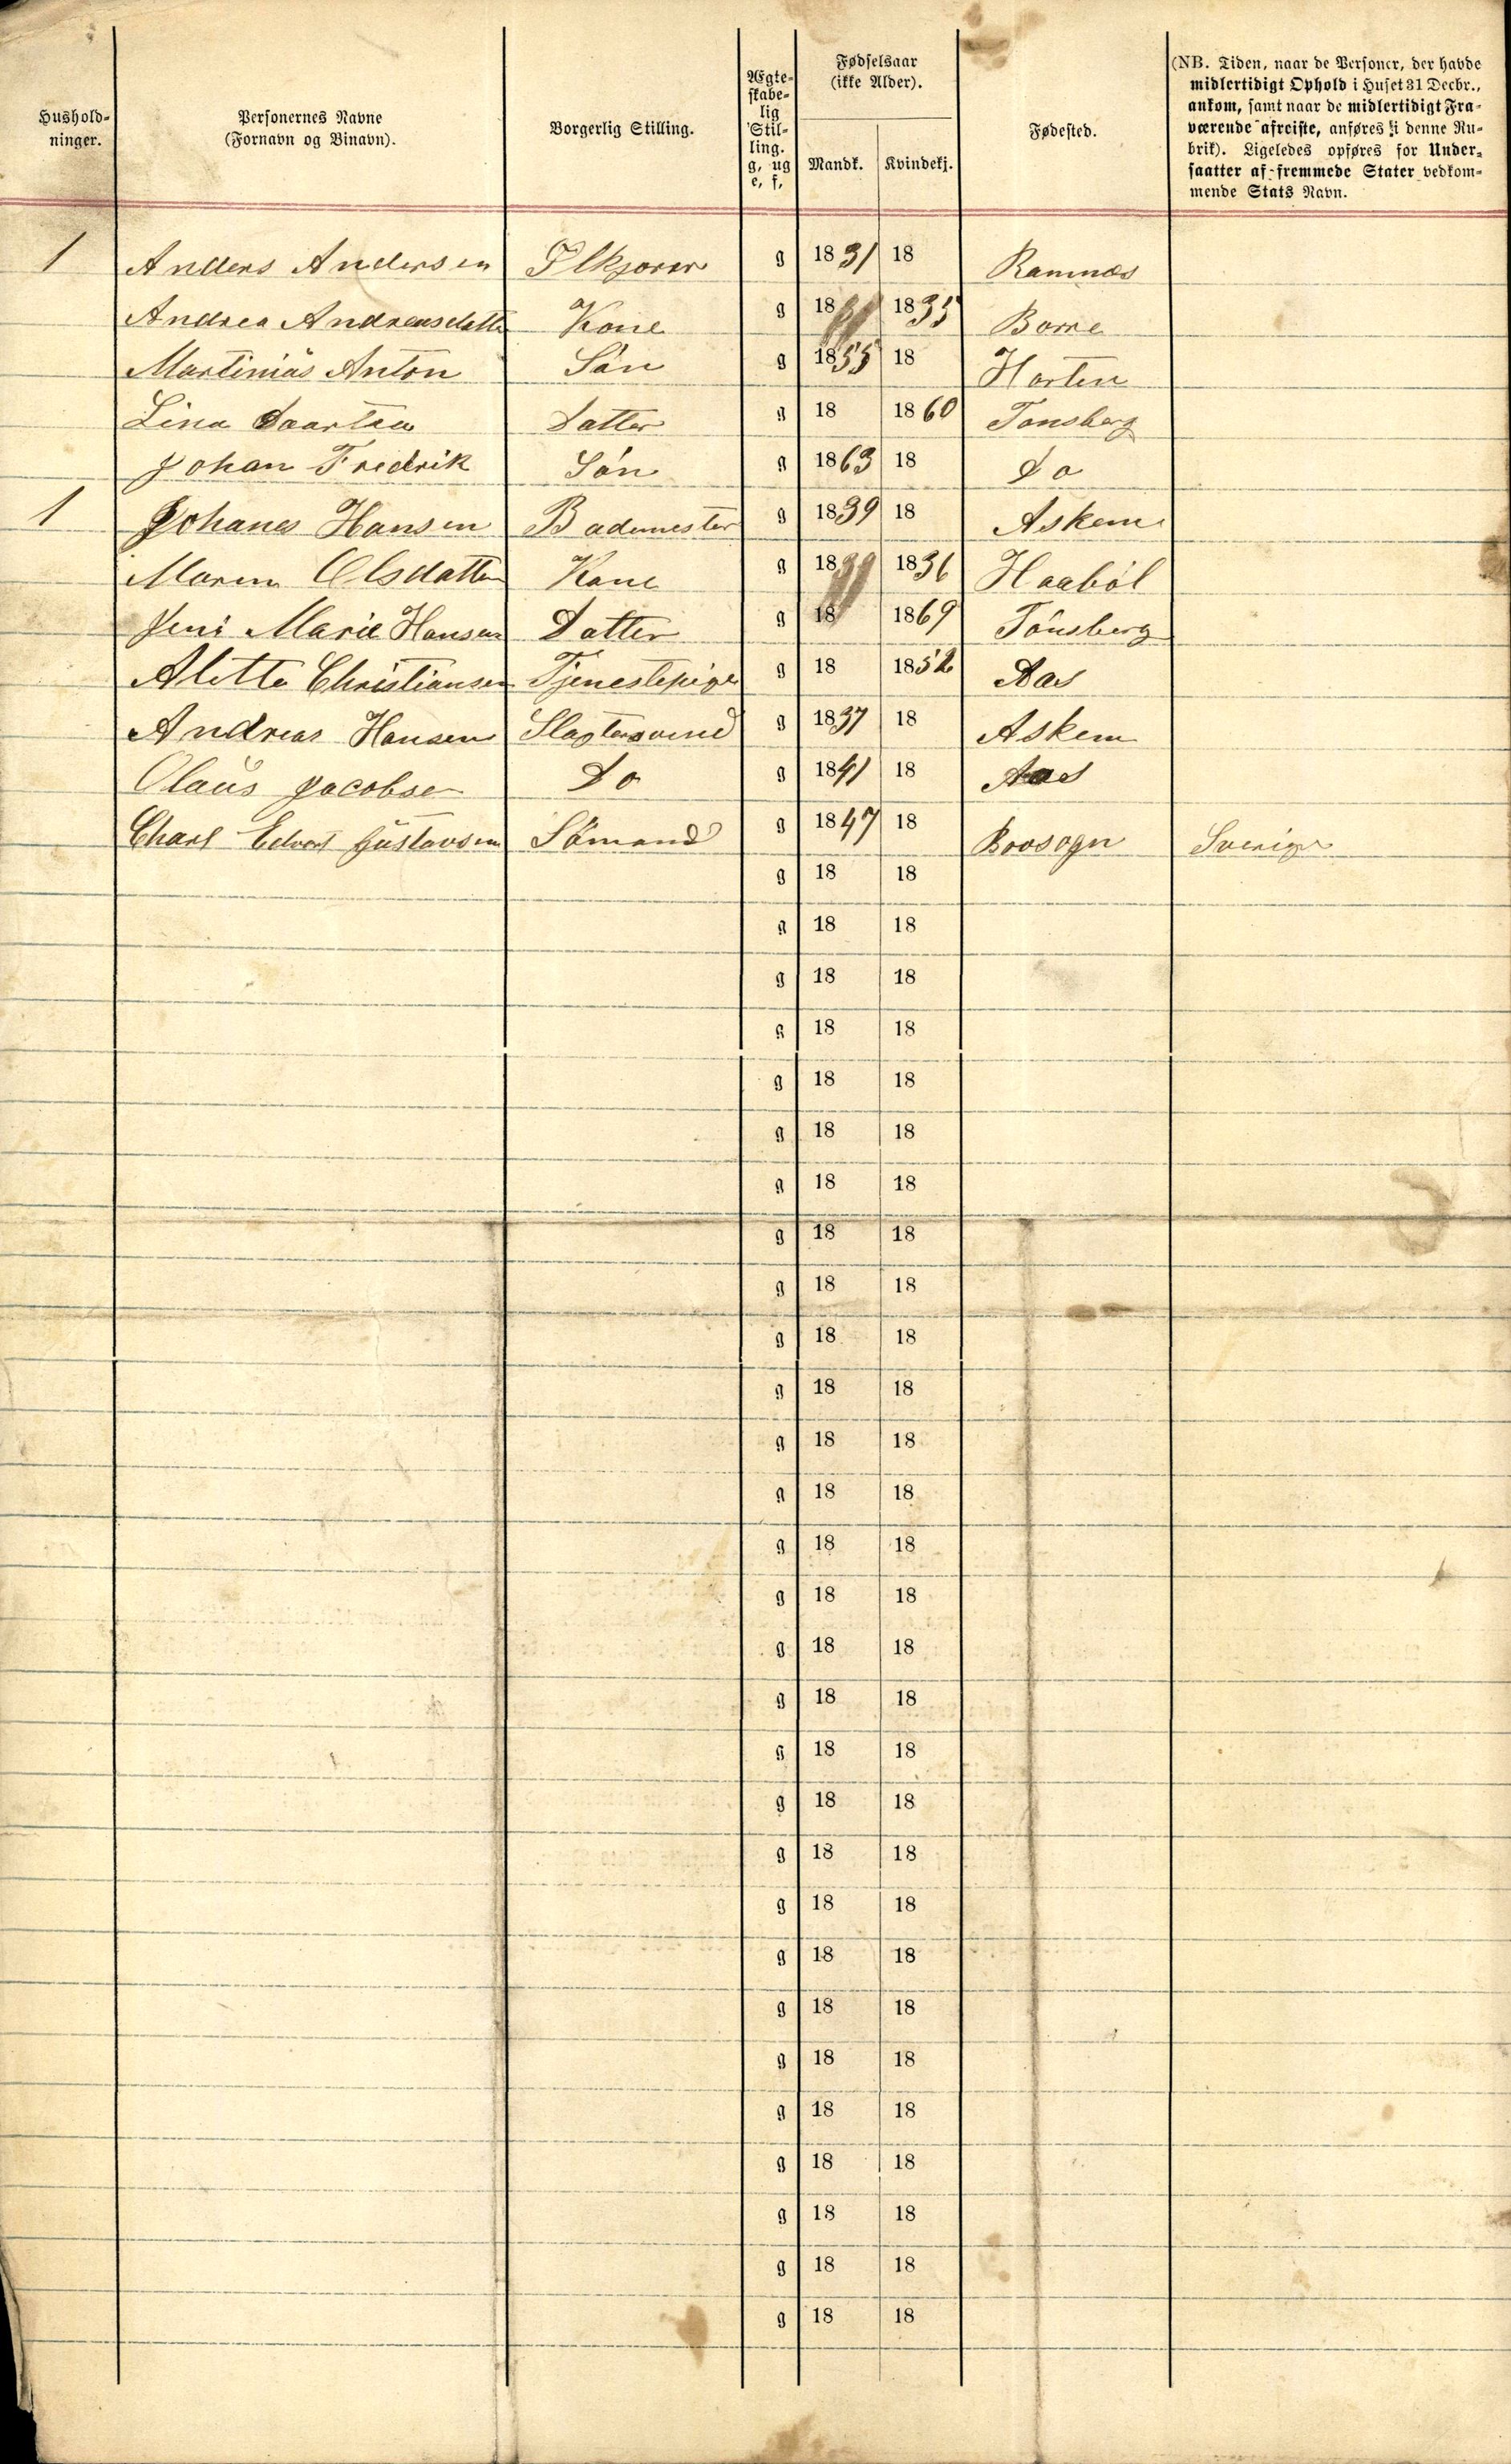 Hushold-
ninger.
Personernes Navne
(Fornavn og Binavn).
Borgerlig Stilling.
Ægte-
skabe-
lig
Stil-
ling.
g, ug
e, f,
Fødselsaar
(ikke Alder).
Mandk. Kvindekj.
Fødested.
(NB. Tiden, naar de Personer, der havde
midlertidigt Ophold i Huset 31 Decbr.,
ankom, samt naar de midlertidigt Fra-
værende afreiste, anføres i denne Ru-
brik). Ligeledes opføres for Under-
saatter af fremmede Stater vedkom-
mende Stats Navn.
1 Anders Andersen g 1831 18 Ramnæs
Andrea Andreasdatter Kone g 18 1835 Borre
Martinius Anton Sön g 1855 18 Horten
Lina Datter g 18 1860 Tonsberg
Johan Fredrik Sön g 1863 18 Do
1 Johanes Hansen Bademester g 1839 18 Askem
Maren Olsdatter Kone g 18 1836 Haaböl
Jeni Marie Hansen Datter g 18 1869 Tönsberg
Alette Christiansen Tjenestepige g 18 1852 Aas
Andreas Hansen g 1837 18 Askem
Olaüs Jacobsen Do g 1841 18 Aas
Charl Edvart Güstavsen Sömand g 1847 18 Sverige
g 18 18
g 18 18
g 18 18
g 18 18
g 18 18
g 18 18
g 18 18
g 18 18
g 18 18
g 18 18
g 18 18
g 18 18
g 18 18
g 18 18
g 18 18
g 18 18
g 18 18
g 18 18
g 18 18
g 18 18
g 18 18
g 18 18
g 18 18
g 18 18
g 18 18
g 18 18
g 18 18
g 18 18
g 18 18